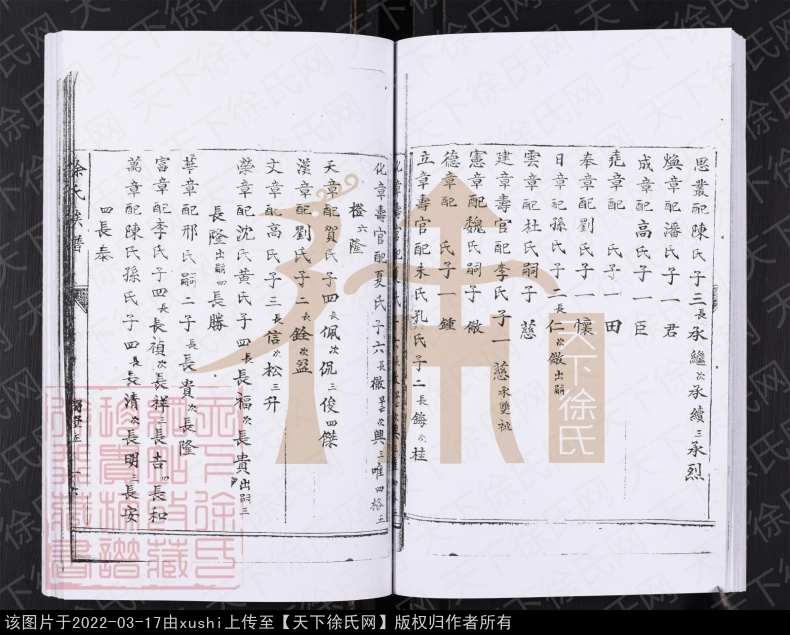 思叢配陳氏子三長承繼次承續三承烈
煥章配潘氏子一君
成章配高氏子一臣
堯章配 氏子一田
奉章配劉氏子一懷
日章配孫氏子二長仁次傚出嗣
雲章配杜氏嗣子慈
建章壽官配李氏子一慈承雙祧
憲章配魏氏嗣子傚
德章配 氏子一鍾
立章壽官配朱氏孔氏子二長鋂次桂
化章壽官配夏氏子六長徵 次興三唯四格五
橙六隆
天章配賀氏子四長佩次侃三俊四傑
漢章配劉氏子二長銓次盆
文章配高氏子三長信次松三升
榮章配沈氏黃氏子四長長福次長貴出嗣三
長隆出嗣四長勝
華章配邢氏嗣二子長長貴次長隆
富章配李氏子四長長禎次長祥三長吉四長和
萬章配陳氏孫氏子四長長清次長明三長安
四長泰
徐氏族譜
天下徐氏
天下徐氏网
该图片于2022-03-17由xushi上传至【天下徐氏网】版权归作者所有